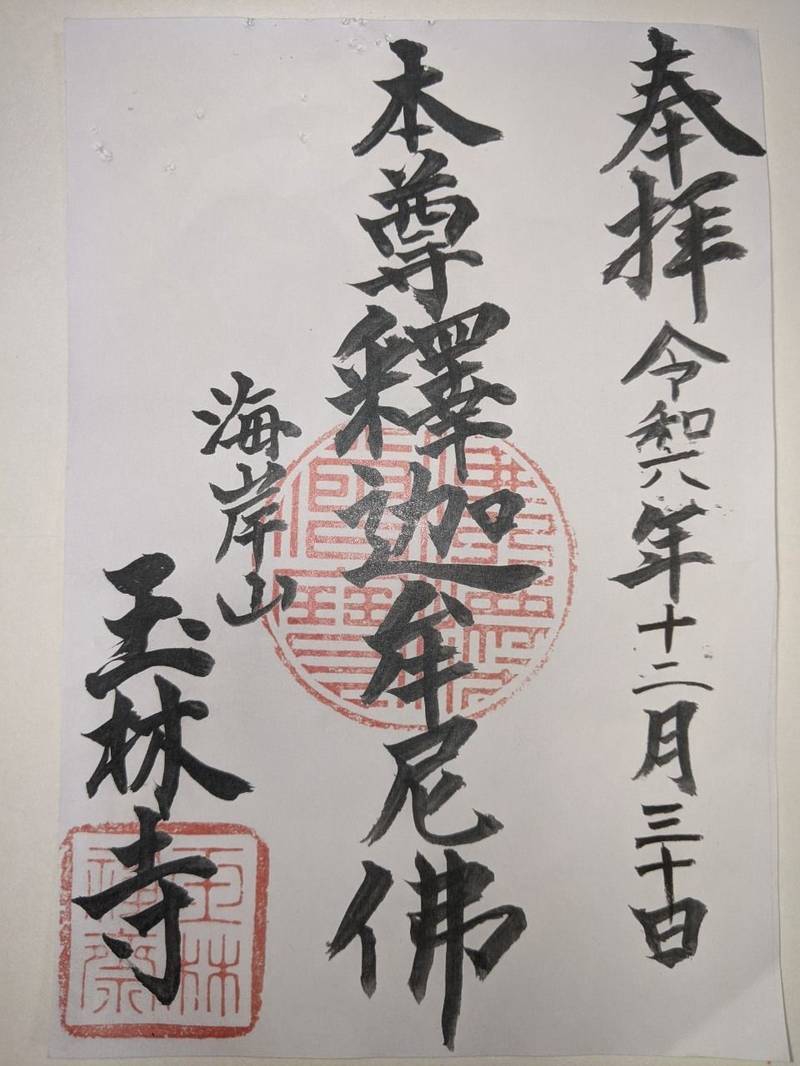 奉拝 令和六年十二月三十日
本尊釋迦牟尼佛
海岸山
玉林寺
玉林禅寮